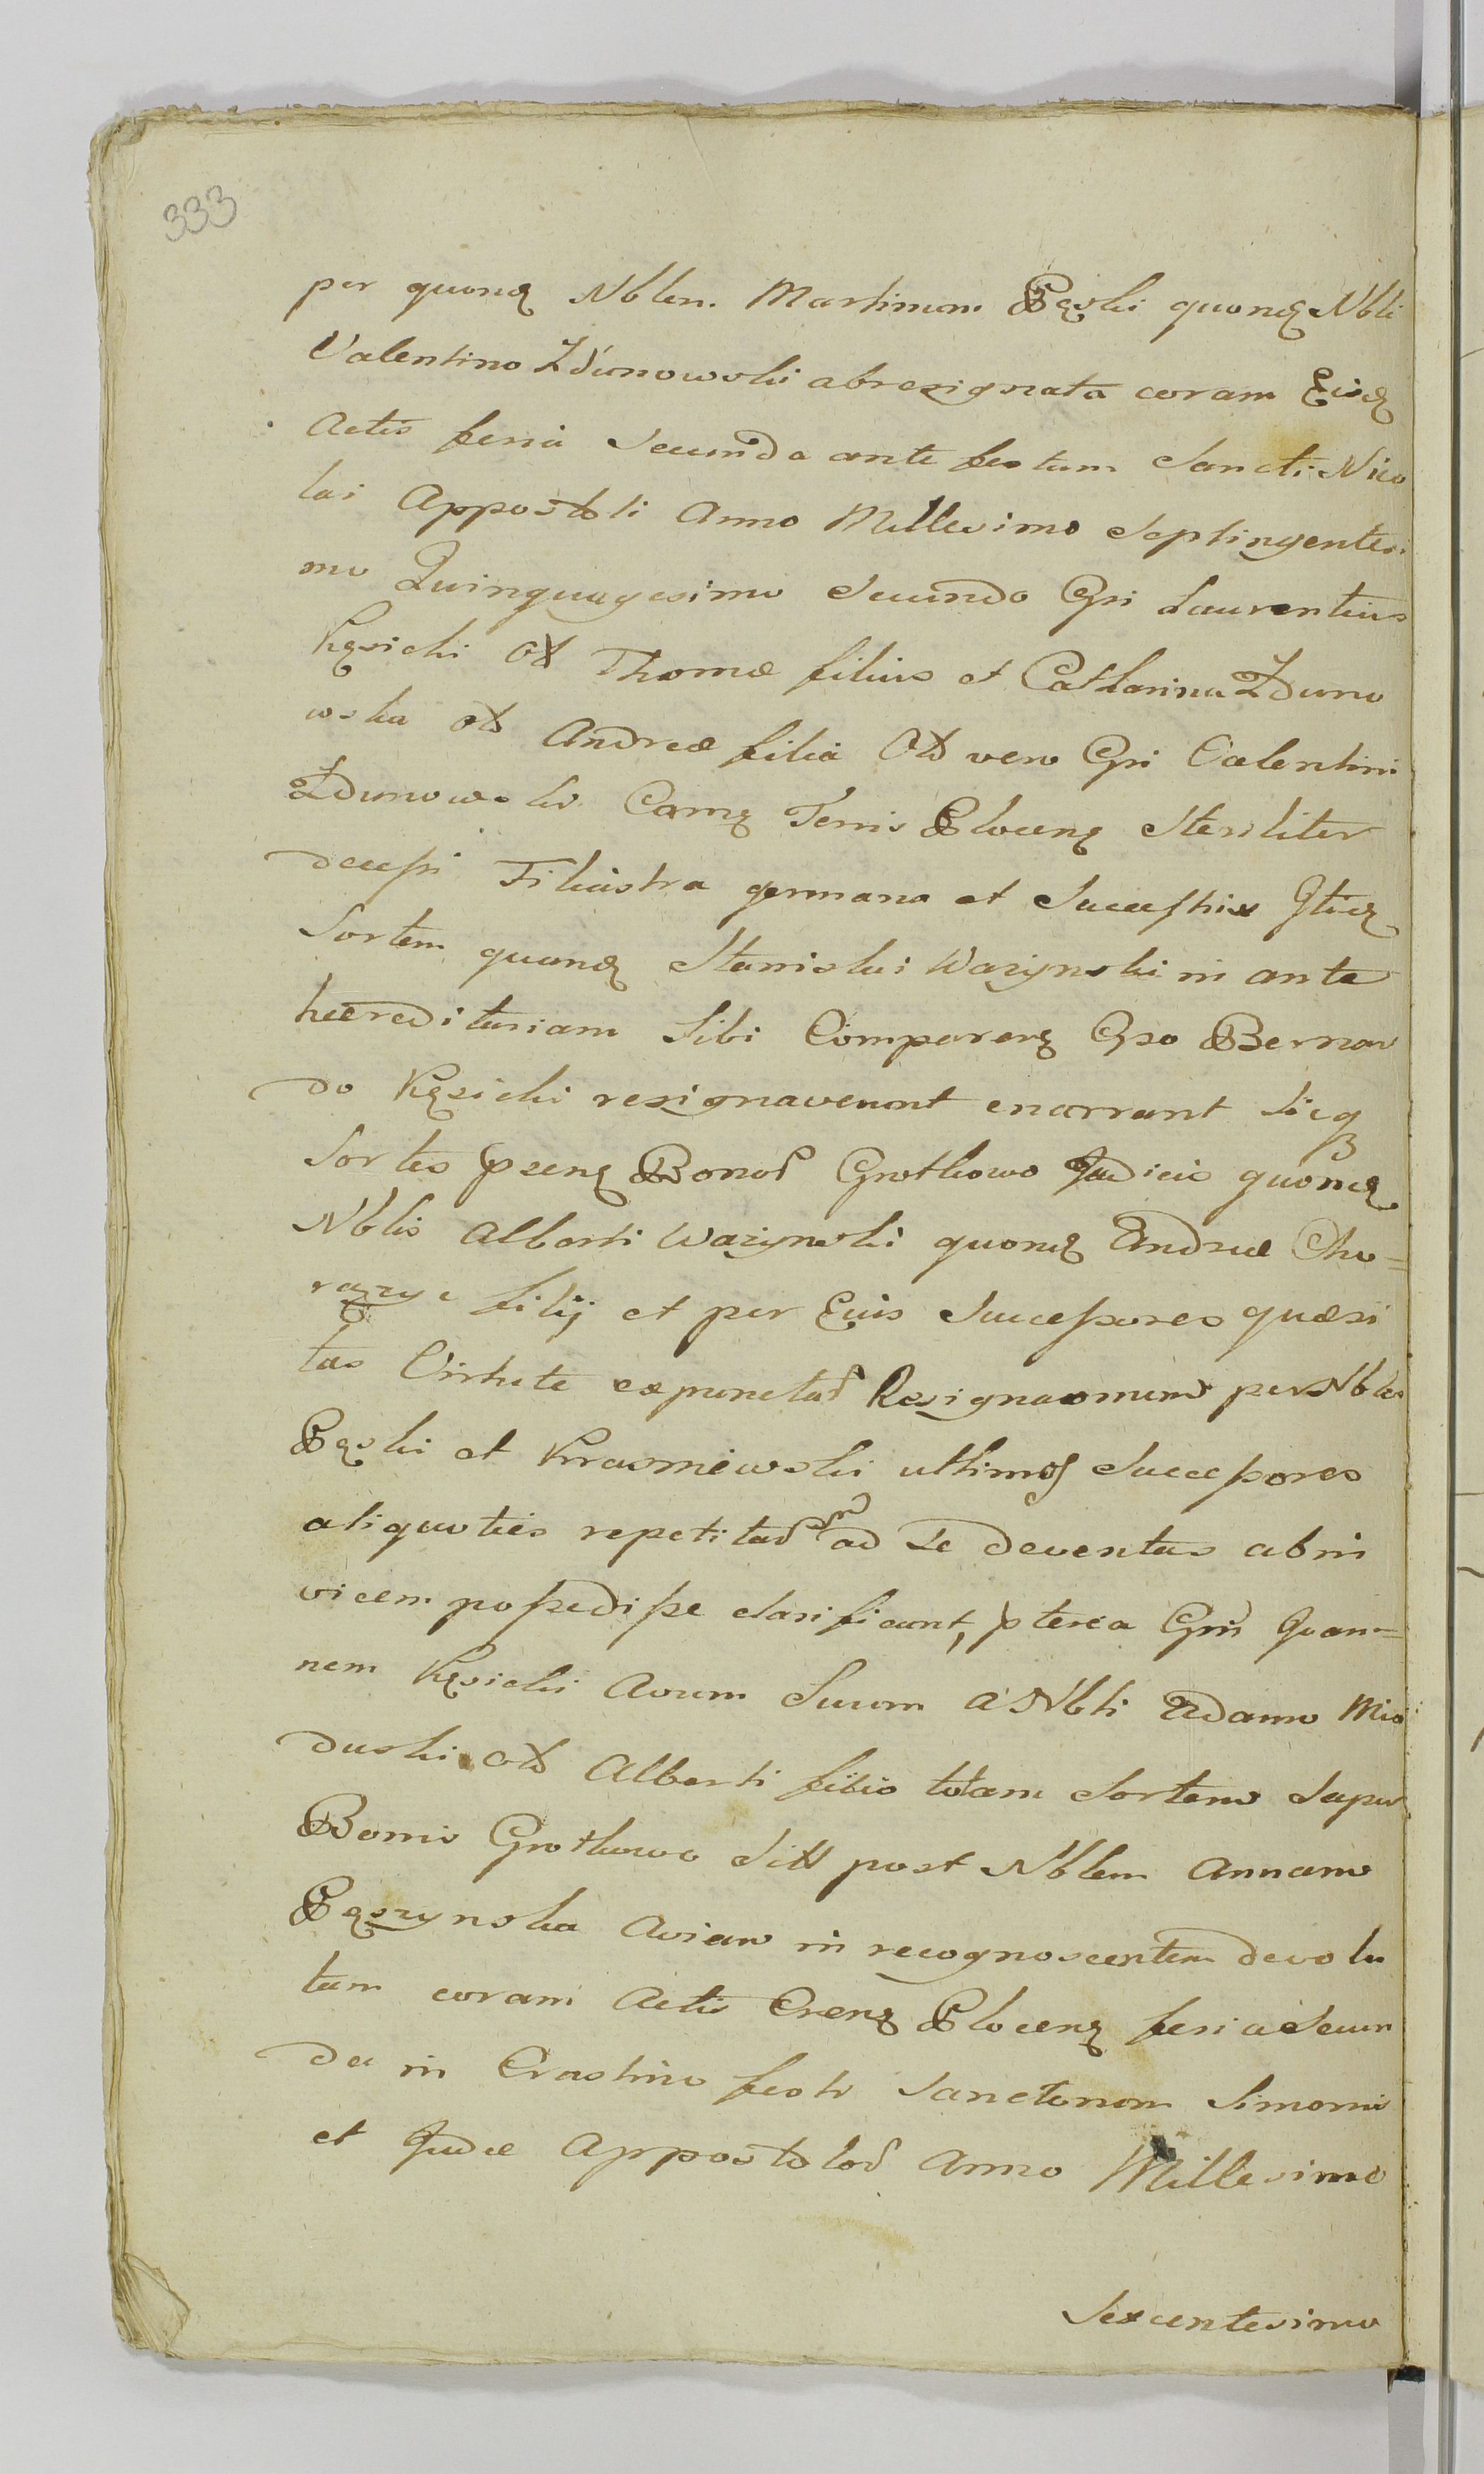 333
per quond Nblem. Martinum Pęski quond Nbli
Valentino Zdunowski abrezignata coram Eisd
Actis feria Secunda ante festum Sancti Nico
lai Appostoli Anno Millesimo Septingentesi
mo Quinquagesimo Secundo Gsi Laurentius
Kęsicki Od Thomæ filius et Catharina Zduno
wska Od Andreæ filia Od vero Gsi Valentini
Zdunowski Camq Terris Plocenq Steriliter
decessi Filiastra germana et Successtrix Itid
Sortem quond Stanislai Warynski in ante
hæreditariam Sibi Comparenq Gso Bernar
do Kęsicki resignaverunt enarrant Sicq
Sortes psenq Bonor Grotkowo Judicis quond
Nblis Alberti Warynski quond Andreæ Cho=
rązye filij et per Eius Successores quæsi
tas Virtute expunctar Resignaonum per Nbles
Pęski et Krasniewski ultimos Successores
aliquoties repetitar ad Se deventas ab in
vicem possedisse clarificant, pterea Gm Joan=
nem Kęsicki Avum Suum a Nbli Adamo Mio
duski Od Alberti filio totam Sortem Super
Bonis Grotkowo Sitt post Nblem Annam
Pęszynska Aviam in recognoscentem devolu
tam coram Actis Crenq Plocenq feria Secun
da in Crastino festi Sanctorum Simonis
et Judæ Appostolor Anno Millesimo
Sexcentesimo